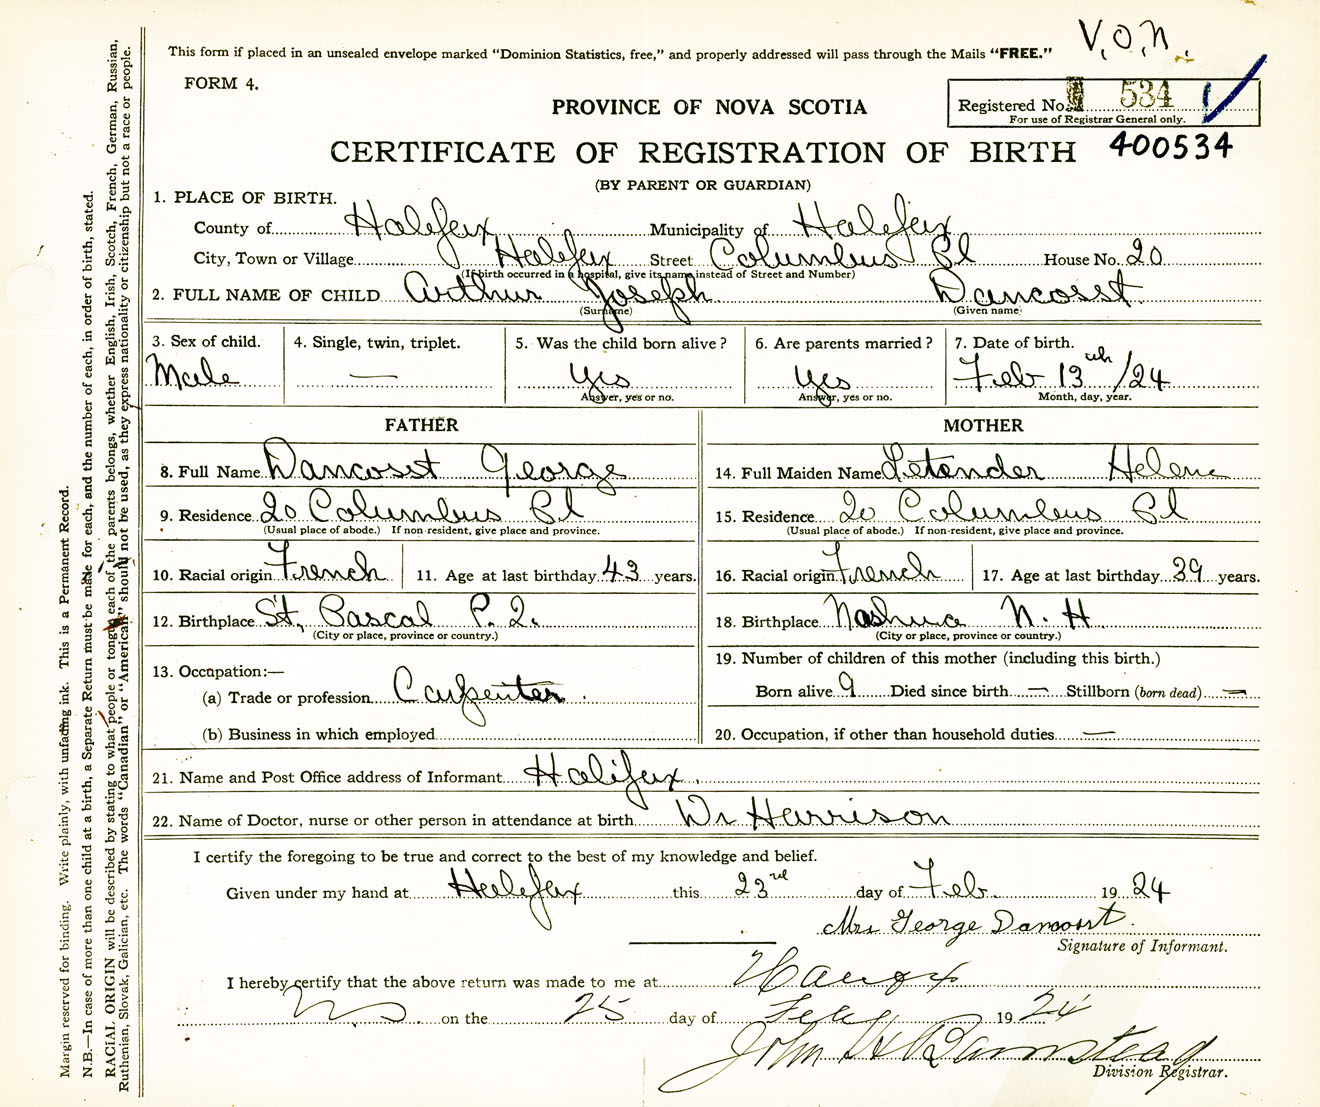 V.O.N.
This form if placed in an unsealed envelope marked “Dominion Statistics, free,” and properly addressed will pass through the Mails “FREE.”
FORM 4.
PROVINCE OF NOVA SCOTIA
Registered No. 534
For use of Registrar General only.
CERTIFICATE OF REGISTRATION OF BIRTH 400534
(BY PARENT OR GUARDIAN)
1. PLACE OF BIRTH.
County of Halifax Municipality of Halifax
City, Town or Village Halifax Street Columbus Pl House No. 20
(If birth occurred in a hospital, give its name instead of Street and Number)
2. FULL NAME OF CHILD Arthur Joseph Dancosst
(Surname) (Given name)
3. Sex of child. 4. Single, twin, triplet. 5. Was the child born alive? 6. Are parents married? 7. Date of birth.
Male — Yes Yes Feb 13th/24
Answer, yes or no. Answer, yes or no. Month, day, year.
FATHER MOTHER
8. Full Name Dancosst George 14. Full Maiden Name Letender Helene
9. Residence 20 Columbus Pl 15. Residence 20 Columbus Pl
(Usual place of abode.) If non-resident, give place and province. (Usual place of abode.) If non-resident, give place and province.
10. Racial origin French 11. Age at last birthday 43 years. 16. Racial origin French 17. Age at last birthday 39 years.
12. Birthplace St. Pascal P.Q. 18. Birthplace Nashua N.H
(City or place, province or country.) (City or place, province or country.)
13. Occupation:— 19. Number of children of this mother (including this birth.)
(a) Trade or profession Carpenter. Born alive 9 Died since birth — Stillborn (born dead) —
(b) Business in which employed 20. Occupation, if other than household duties —
21. Name and Post Office address of Informant Halifax.
22. Name of Doctor, nurse or other person in attendance at birth Dr Harrison
I certify the foregoing to be true and correct to the best of my knowledge and belief.
Given under my hand at Halifax this 23rd day of Feb. 1924
Mrs George Dancosst.
Signature of Informant.
I hereby certify that the above return was made to me at
N.S. on the 25 day of Feby 1924
John H Barnstead
Division Registrar.
Margin reserved for binding. Write plainly, with unfading ink. This is a Permanent Record.
N.B.—In case of more than one child at a birth, a Separate Return must be made for each, and the number of each, in order of birth, stated.
RACIAL ORIGIN will be described by stating to what people or tongue each of the parents belongs, whether English, Irish, Scotch, French, German, Russian,
Ruthenian, Slovak, Galician, etc. The words “Canadian” or “American” should not be used, as they express nationality or citizenship but not a race or people.